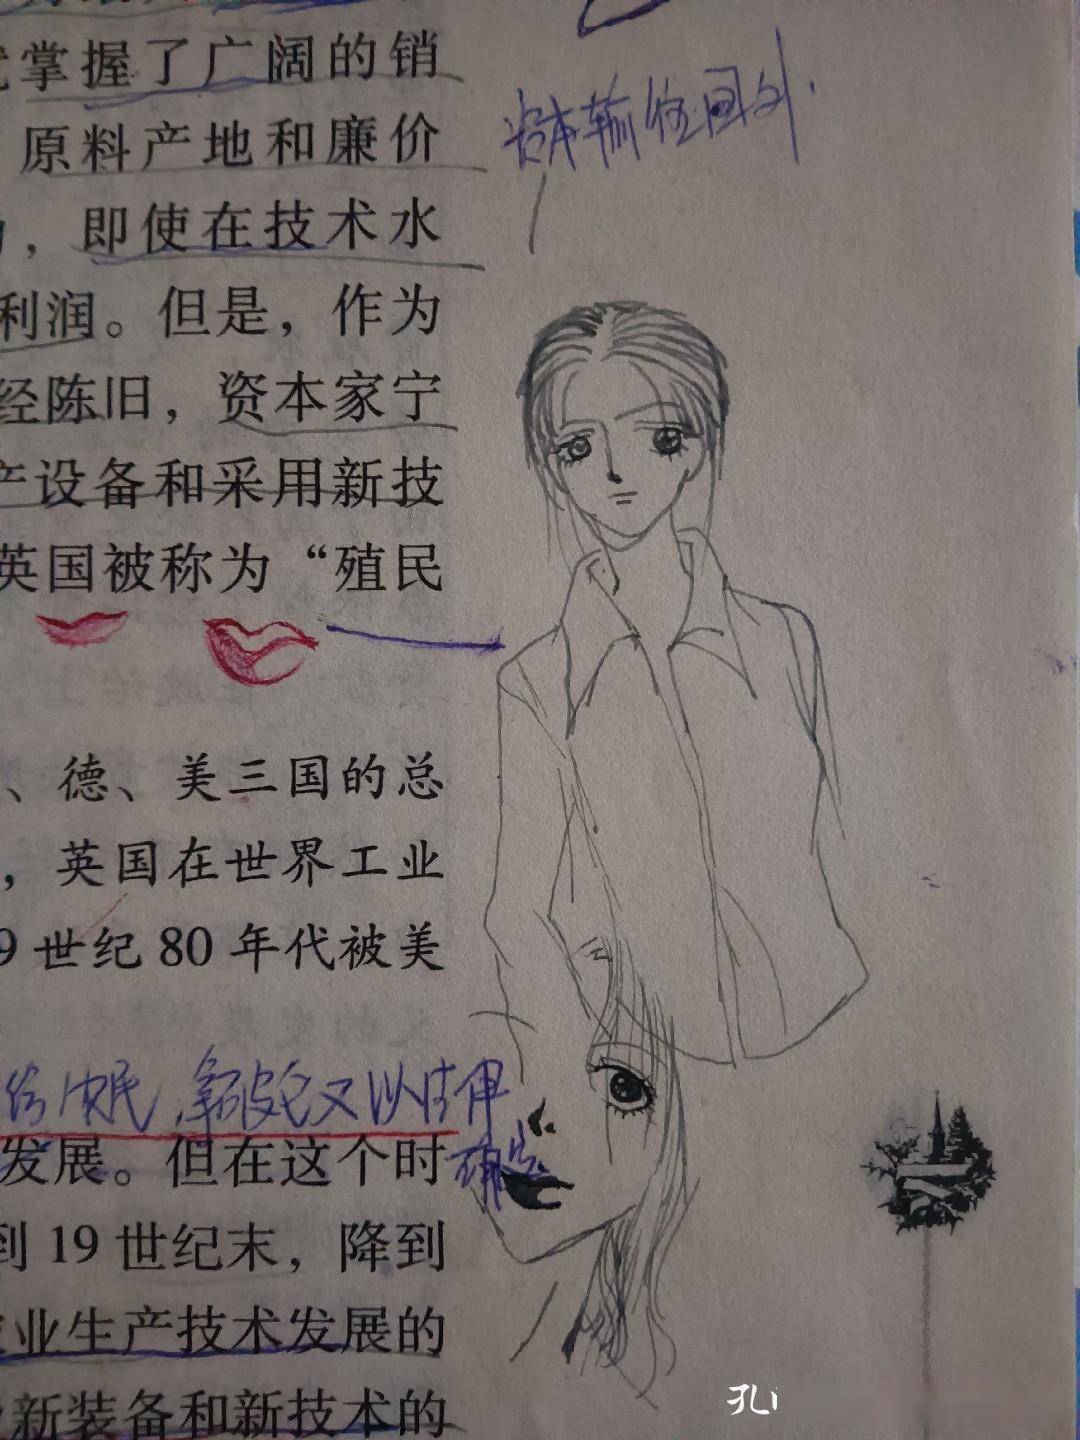 掌握了广阔的销
资本输往国外.
原料产地和廉价
，即使在技术水
利润。但是，作为
经陈旧，资本家宁
产设备和采用新技
英国被称为“殖民
、德、美三国的总
，英国在世界工业
9世纪80年代被美
发展。但在这个时
到19世纪末，降到
业生产技术发展的
新装备和新技术的
孔